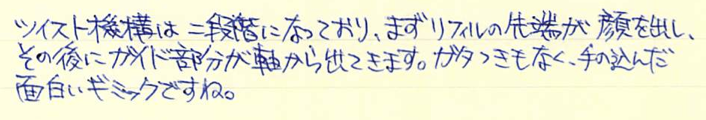 ツイスト機構は二段階になっており、まずリフィルの先端が顔を出し、
その後にガイド部分が軸から出てきます。ガタつきもなく、手の込んだ
面白いギミックですね。